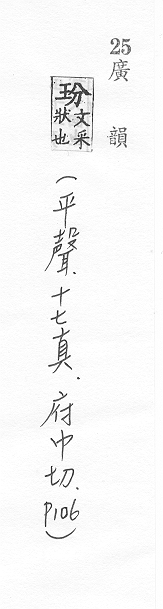 25廣韻
玢文采狀也
(平聲.十七真.府巾切.P106)